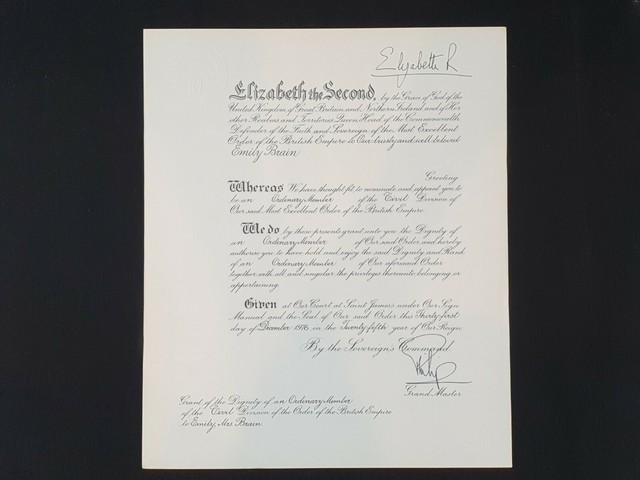 Elizabeth R
Elizabeth the Second, by the Grace of God of the
United Kingdom of Great Britain and Northern Ireland and of Her
other Realms and Territories Queen, Head of the Commonwealth,
Defender of the Faith and Sovereign of the Most Excellent
Order of the British Empire to Our trusty and well beloved
Emily Brain
Greeting
Whereas We have thought fit to nominate and appoint you to
be an Ordinary Member of the Civil Division of
Our said Most Excellent Order of the British Empire
We do by these presents grant unto you the Dignity of
an Ordinary Member of Our said Order and hereby
authorise you to have hold and enjoy the said Dignity and Rank
of an Ordinary Member of Our aforesaid Order
together with all and singular the privileges thereunto belonging or
appertaining.
Given at Our Court at Saint James's under Our Sign
Manual and the Seal of Our said Order this Thirty-first
day of December 1976 in the Twenty-fifth year of Our Reign.
By the Sovereign's Command.
Philip
Grand Master
Grant of the Dignity of an Ordinary Member
of the Civil Division of the Order of the British Empire
to Emily, Mrs. Brain